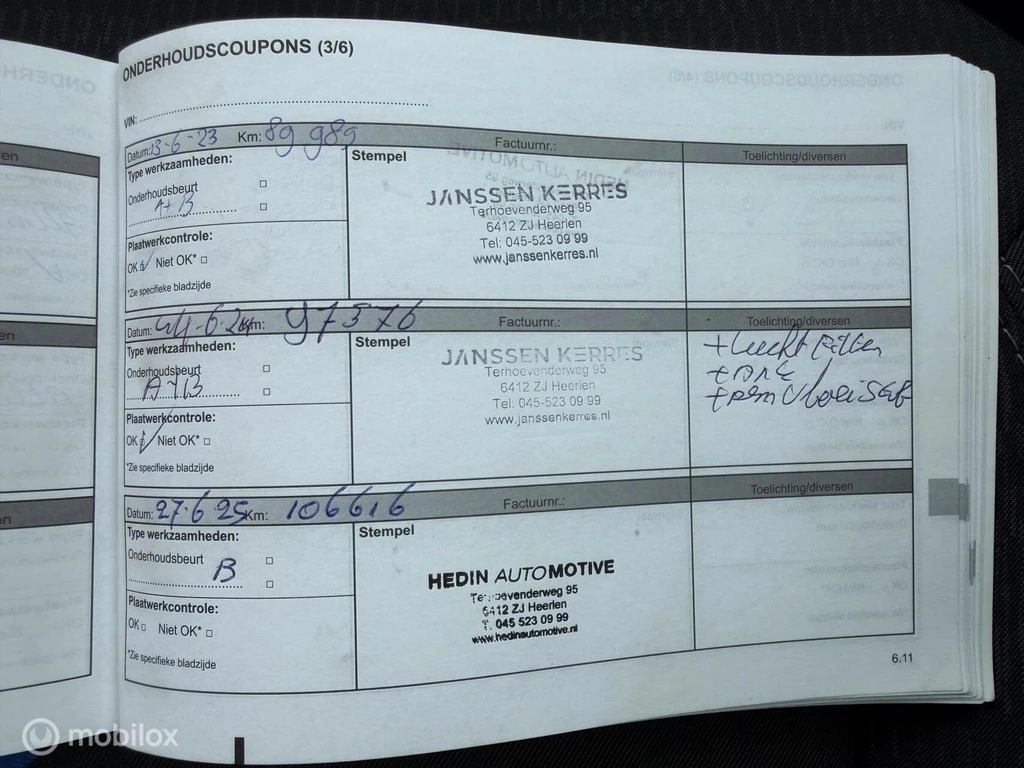 ONDERHOUDSCOUPONS (3/6)
VIN:
Datum: 13-6-23 Km: 89 989 Factuurnr.: Toelichting/diversen
Type werkzaamheden:
Onderhoudsbeurt
A+B
Plaatwerkcontrole:
OK Niet OK*
*Zie specifieke bladzijde
Stempel
JANSSEN KERRES
Terhoevenderweg 95
6412 ZJ Heerlen
Tel: 045-523 09 99
www.janssenkerres.nl
Datum: 6-24 Km: 97376 Factuurnr.: Toelichting/diversen
Type werkzaamheden:
Onderhoudsbeurt
A+B
Plaatwerkcontrole:
OK Niet OK*
*Zie specifieke bladzijde
Stempel
JANSSEN KERRES
Terhoevenderweg 95
6412 ZJ Heerlen
Tel: 045-523 09 99
www.janssenkerres.nl
+ Lucht
+
+ rem vloeistof
Datum: 27-6-25 Km: 106616 Factuurnr.: Toelichting/diversen
Type werkzaamheden:
Onderhoudsbeurt
B
Plaatwerkcontrole:
OK Niet OK*
*Zie specifieke bladzijde
Stempel
HEDIN AUTOMOTIVE
Terhoevenderweg 95
6412 ZJ Heerlen
T. 045 523 09 99
www.hedinautomotive.nl
6.11
mobilox